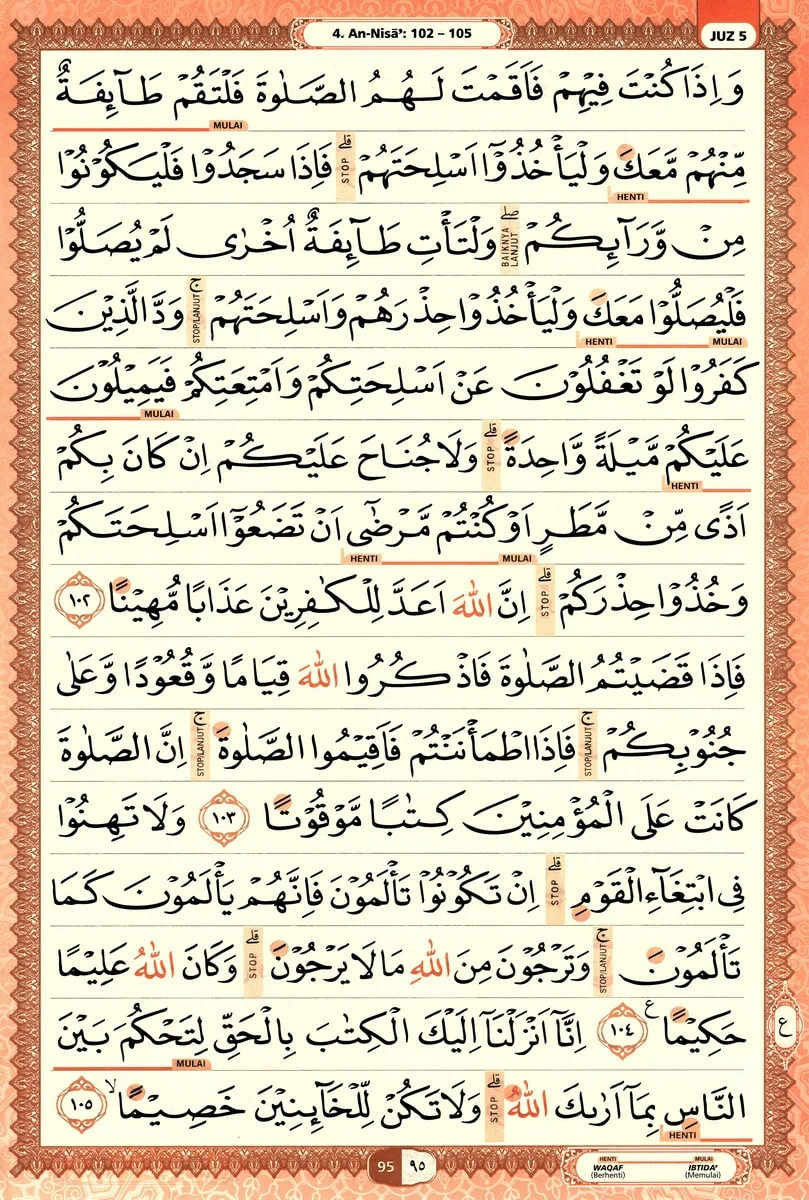 4. An-Nisā': 102 – 105
JUZ 5
وَاِذَا كُنْتَ فِيْهِمْ فَاَقَمْتَ لَهُمُ الصَّلٰوةَ فَلْتَقُمْ طَاۤىِٕفَةٌ
MULAI
مِّنْهُمْ مَّعَكَ وَلْيَأْخُذُوْٓا اَسْلِحَتَهُمْ ۗ STOP فَاِذَا سَجَدُوْا فَلْيَكُوْنُوْا
HENTI
مِنْ وَّرَاۤىِٕكُمْ ۖ BAIKNYA LANJUT وَلْتَأْتِ طَاۤىِٕفَةٌ اُخْرٰى لَمْ يُصَلُّوْا
فَلْيُصَلُّوْا مَعَكَ وَلْيَأْخُذُوْا حِذْرَهُمْ وَاَسْلِحَتَهُمْ ۚ STOP/LANJUT وَدَّ الَّذِيْنَ
HENTI MULAI
كَفَرُوْا لَوْ تَغْفُلُوْنَ عَنْ اَسْلِحَتِكُمْ وَاَمْتِعَتِكُمْ فَيَمِيْلُوْنَ
MULAI
عَلَيْكُمْ مَّيْلَةً وَّاحِدَةً ۗ STOP وَلَا جُنَاحَ عَلَيْكُمْ اِنْ كَانَ بِكُمْ
HENTI
اَذًى مِّنْ مَّطَرٍ اَوْ كُنْتُمْ مَّرْضٰٓى اَنْ تَضَعُوْٓا اَسْلِحَتَكُمْ
HENTI MULAI
وَخُذُوْا حِذْرَكُمْ ۗ STOP اِنَّ اللّٰهَ اَعَدَّ لِلْكٰفِرِيْنَ عَذَابًا مُّهِيْنًا ١٠٢
فَاِذَا قَضَيْتُمُ الصَّلٰوةَ فَاذْكُرُوا اللّٰهَ قِيَامًا وَّقُعُوْدًا وَّعَلٰى
جُنُوْبِكُمْ ۚ STOP/LANJUT فَاِذَا اطْمَأْنَنْتُمْ فَاَقِيْمُوا الصَّلٰوةَ ۚ STOP/LANJUT اِنَّ الصَّلٰوةَ
كَانَتْ عَلَى الْمُؤْمِنِيْنَ كِتٰبًا مَّوْقُوْتًا ١٠٣ وَلَا تَهِنُوْا
فِى ابْتِغَاۤءِ الْقَوْمِ ۗ STOP اِنْ تَكُوْنُوْا تَأْلَمُوْنَ فَاِنَّهُمْ يَأْلَمُوْنَ كَمَا
تَأْلَمُوْنَ ۚ STOP/LANJUT وَتَرْجُوْنَ مِنَ اللّٰهِ مَا لَا يَرْجُوْنَ ۗ STOP وَكَانَ اللّٰهُ عَلِيْمًا
حَكِيْمًا ࣖ ١٠٤ اِنَّآ اَنْزَلْنَآ اِلَيْكَ الْكِتٰبَ بِالْحَقِّ لِتَحْكُمَ بَيْنَ
ع
MULAI
النَّاسِ بِمَآ اَرٰىكَ اللّٰهُ ۗ STOP وَلَا تَكُنْ لِّلْخَاۤىِٕنِيْنَ خَصِيْمًا ۙ ١٠٥
HENTI
95 ٩٥
HENTI MULAI
WAQAF IBTIDA'
(Berhenti) (Memulai)